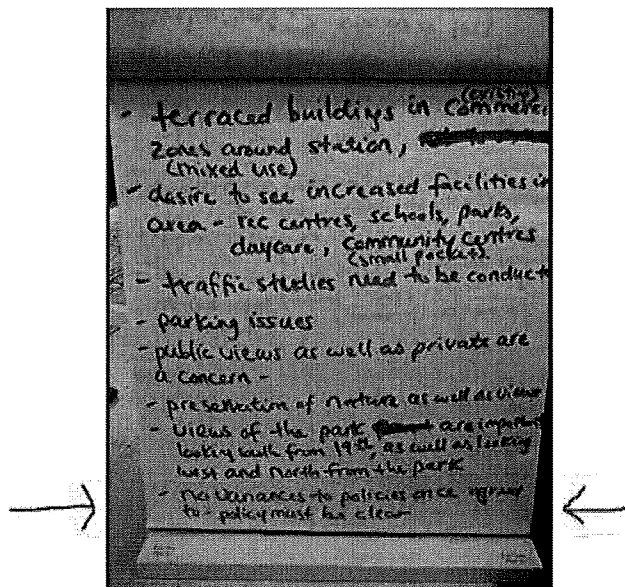 (existing)
- terraced buildings in commerci
zones around station,
(mixed use)
- desire to see increased facilities in
area - rec centres, schools, parks,
daycare, community centres
(small pocket)
- traffic studies need to be conduct
- parking issues
- public views as well as private are
a concern -
- preservation of nature as well as views
- views of the park are important
looking south from 19th, as well as looking
west and north from the park
- no variances to policies once agreed
to - policy must be clear